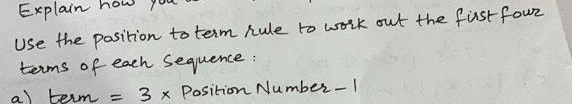 Explain how you
Use the position to term rule to work out the first four
terms of each sequence :
a) term = 3 x Position Number - 1